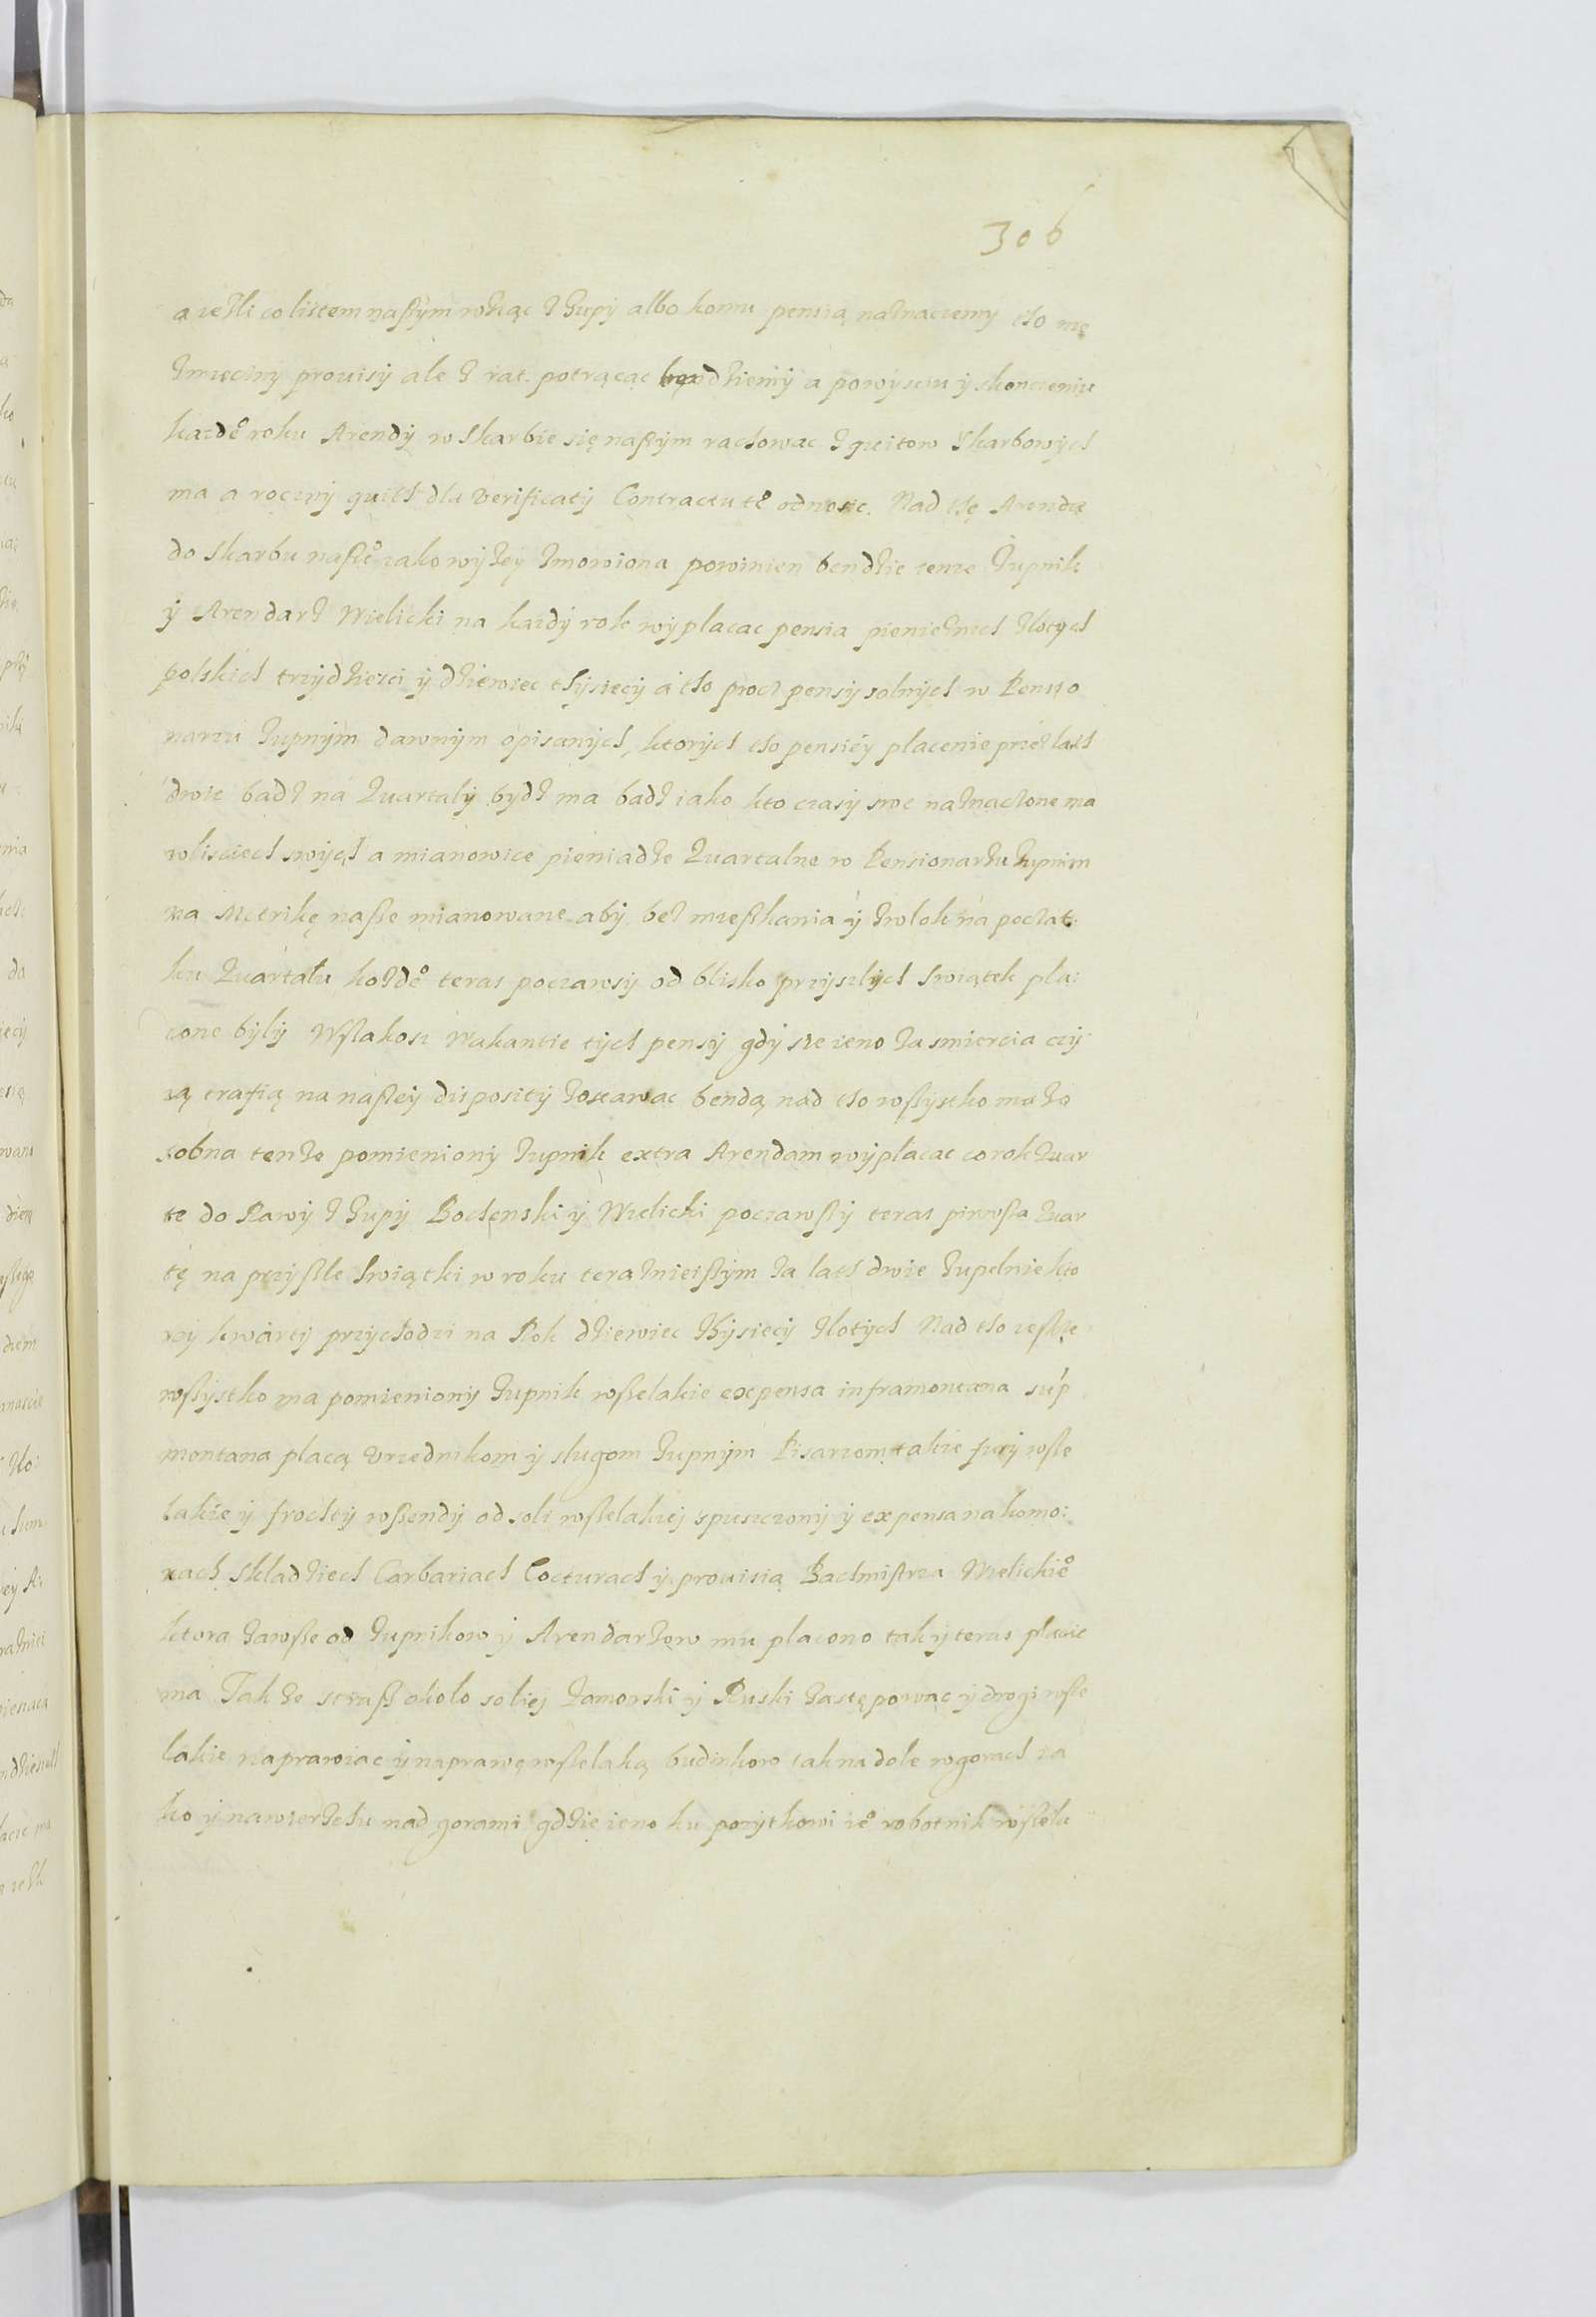 306
a iesli co listem naszym wziąc z żupy albo komu pensią naznaczemy tho nie
prowisy ale z rat potrącac bendziemy a powysciu y skonczeniu
kazdeo roku Arendy w Skarbie się naszym rachowac z quitow Skarbowych
ma a roczny quith dla verificatij Contractu teo odnosic. Nad thę Arendę
do Skarbu naszeo iako wyżey zmowiona powinien bendzie tenze Żupnik
y Arendarz Wielicki na kazdy rok wyplacac pensia pieniężnich zlotych
polskich trzydziesci y dziewiec thysiecy a tho procz pensy solnych w Pensio
narzu żupnym dawnym opisanych, ktorych tho pensiey placenie przez lath
dwie badz na Quartaly bydz ma badz iako kto czasy swe naznaczone ma
wlisciech swych a mianowice pieniadze Quartalne w Pensionarzu żupnim
na Metrikę nasze mianowane aby bez mieszkania y zwlok na poczat
ku Quartalu kozdeo teras poczawsy od blisko przyszlych swiątek pla:
cone byly Wszakosz wakantie tych pensy gdy sie ieno za smiercia czy
ią trafią na naszey dispositij zostawac bendą nad tho wszystko ma zo
sobna tenze pomieniony żupnik extra Arendam wyplacac corok Quar
te do Rawy z żupy Bochenski y Wielicki poczawszy teras pierwsza Quar
tę na przyszle swiątki w roku teraznieiszym za lath dwie zupelnie kto
rey kwarty przychodzi na Rok dziewiec thysiecy zlotych Nad tho ieszcze
wszystko ma pomieniony żupnik wszelakie expensa inframontana sup
montana placą vrzednikom y slugom żupnym Pisarzom takze fury wsze
lakie y frochty wszendy od soli wszelakiej spuszczony y expensa na komo:
rach skladziech Carbariach Cocturach y prouisią Bachmistrza Wielickieo
ktora zawsze od żupnikow y Arendarzow mu placono tak y teras placic
ma Takze straz okolo soliej Zamorski y Ruski zastępowac y drogi wsze
lakie naprawiac y naprawę wszelaką budinkow tak na dole w gorach ia
ko y nawierzchu nad gorami gdzie ieno ku pozytkowi ieo robotnik wszela